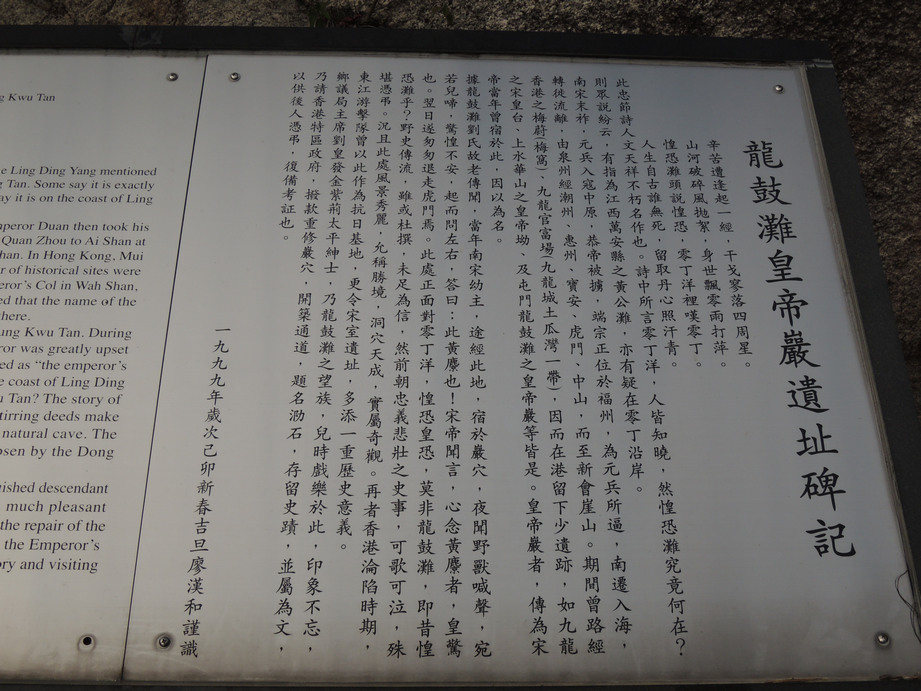 龍鼓灘皇帝巖遺址碑記
辛苦遭逢起一經，干戈寥落四周星。
山河破碎風拋絮，身世飄零雨打萍。
惶恐灘頭說惶恐，零丁洋裡嘆零丁。
人生自古誰無死，留取丹心照汗青。
此忠節詩人文天祥不朽名作也。詩中所言零丁洋，人皆知曉，然惶恐灘究竟何在？
則眾說紛云，有指為江西萬安縣之黃公灘，亦有疑在零丁沿岸。
南宋末祚，元兵入寇中原，恭帝被擄，端宗正位於福州，為元兵所逼，南遷入海，
轉徙流離，由泉州經潮州、惠州、寶安、虎門、中山，而至新會崖山。期間曾路經
香港之梅蔚(梅窩)、九龍官富場(九龍城土瓜灣一帶)，因而在港留下少遺跡，如九龍
之宋皇台、上水華山之皇帝坳、及屯門龍鼓灘之皇帝巖等皆是。皇帝巖者，傳為宋
帝當年曾宿於此，因以為名。
據龍鼓灘劉氏故老傳聞，當年南宋幼主，途經此地，宿於巖穴，夜聞野獸喊聲，宛
若兒啼，驚惶不安，起而問左右，答曰：此黃麖也！宋帝聞言，心念黃麖者，皇驚
也。翌日遂匆匆退走虎門焉。此處正面對零丁洋，惶恐皇恐，莫非龍鼓灘，即昔惶
恐灘乎？野史傳流，雖或杜撰，未足為信，然前朝忠義悲壯之史事，可歌可泣，殊
堪憑弔。況且此處風景秀麗，允稱勝境，洞穴天成，實屬奇觀。再者香港淪陷時期，
東江游擊隊曾以此作為抗日基地，更令宋室遺址，多添一重歷史意義。
鄉議局主席劉皇發金紫荊太平紳士，乃龍鼓灘之望族，兒時戲樂於此，印象不忘，
乃請香港特區政府，撥款重修巖穴，開築通道，題名泐石，存留史蹟，並屬為文，
以供後人憑弔，復備考証也。
一九九九年歲次己卯新春吉旦廖漢和謹識
g Kwu Tan
e Ling Ding Yang mentioned
g Tan. Some say it is exactly
ay it is on the coast of Ling
mperor Duan then took his
Quan Zhou to Ai Shan at
han. In Hong Kong, Mui
r of historical sites were
eror's Col in Wah Shan,
ed that the name of the
here.
ung Kwu Tan. During
ror was greatly upset
ed as "the emperor's
e coast of Ling Ding
u Tan? The story of
tirring deeds make
natural cave. The
osen by the Dong
uished descendant
much pleasant
the repair of the
the Emperor's
ory and visiting